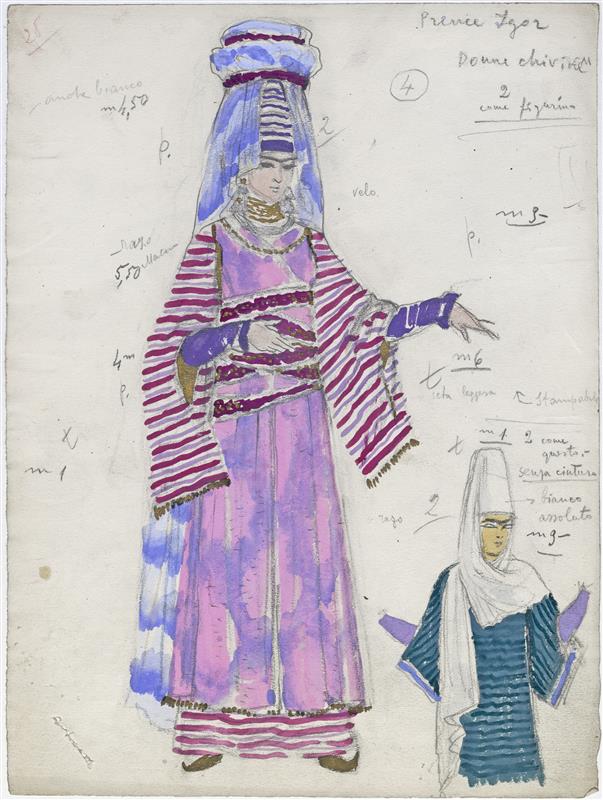 25
Prence Igor
Donne chivirek
4
2
come figurino
anche bianco
m 4,50
2
p.
velo
m 3-
p.
raso
5,50
4 m
p.
m 6
seta leggera
stampata
m 1
m 1
2 come
questo.-
senza cintura
bianco
assoluto
m 3-
raso
2